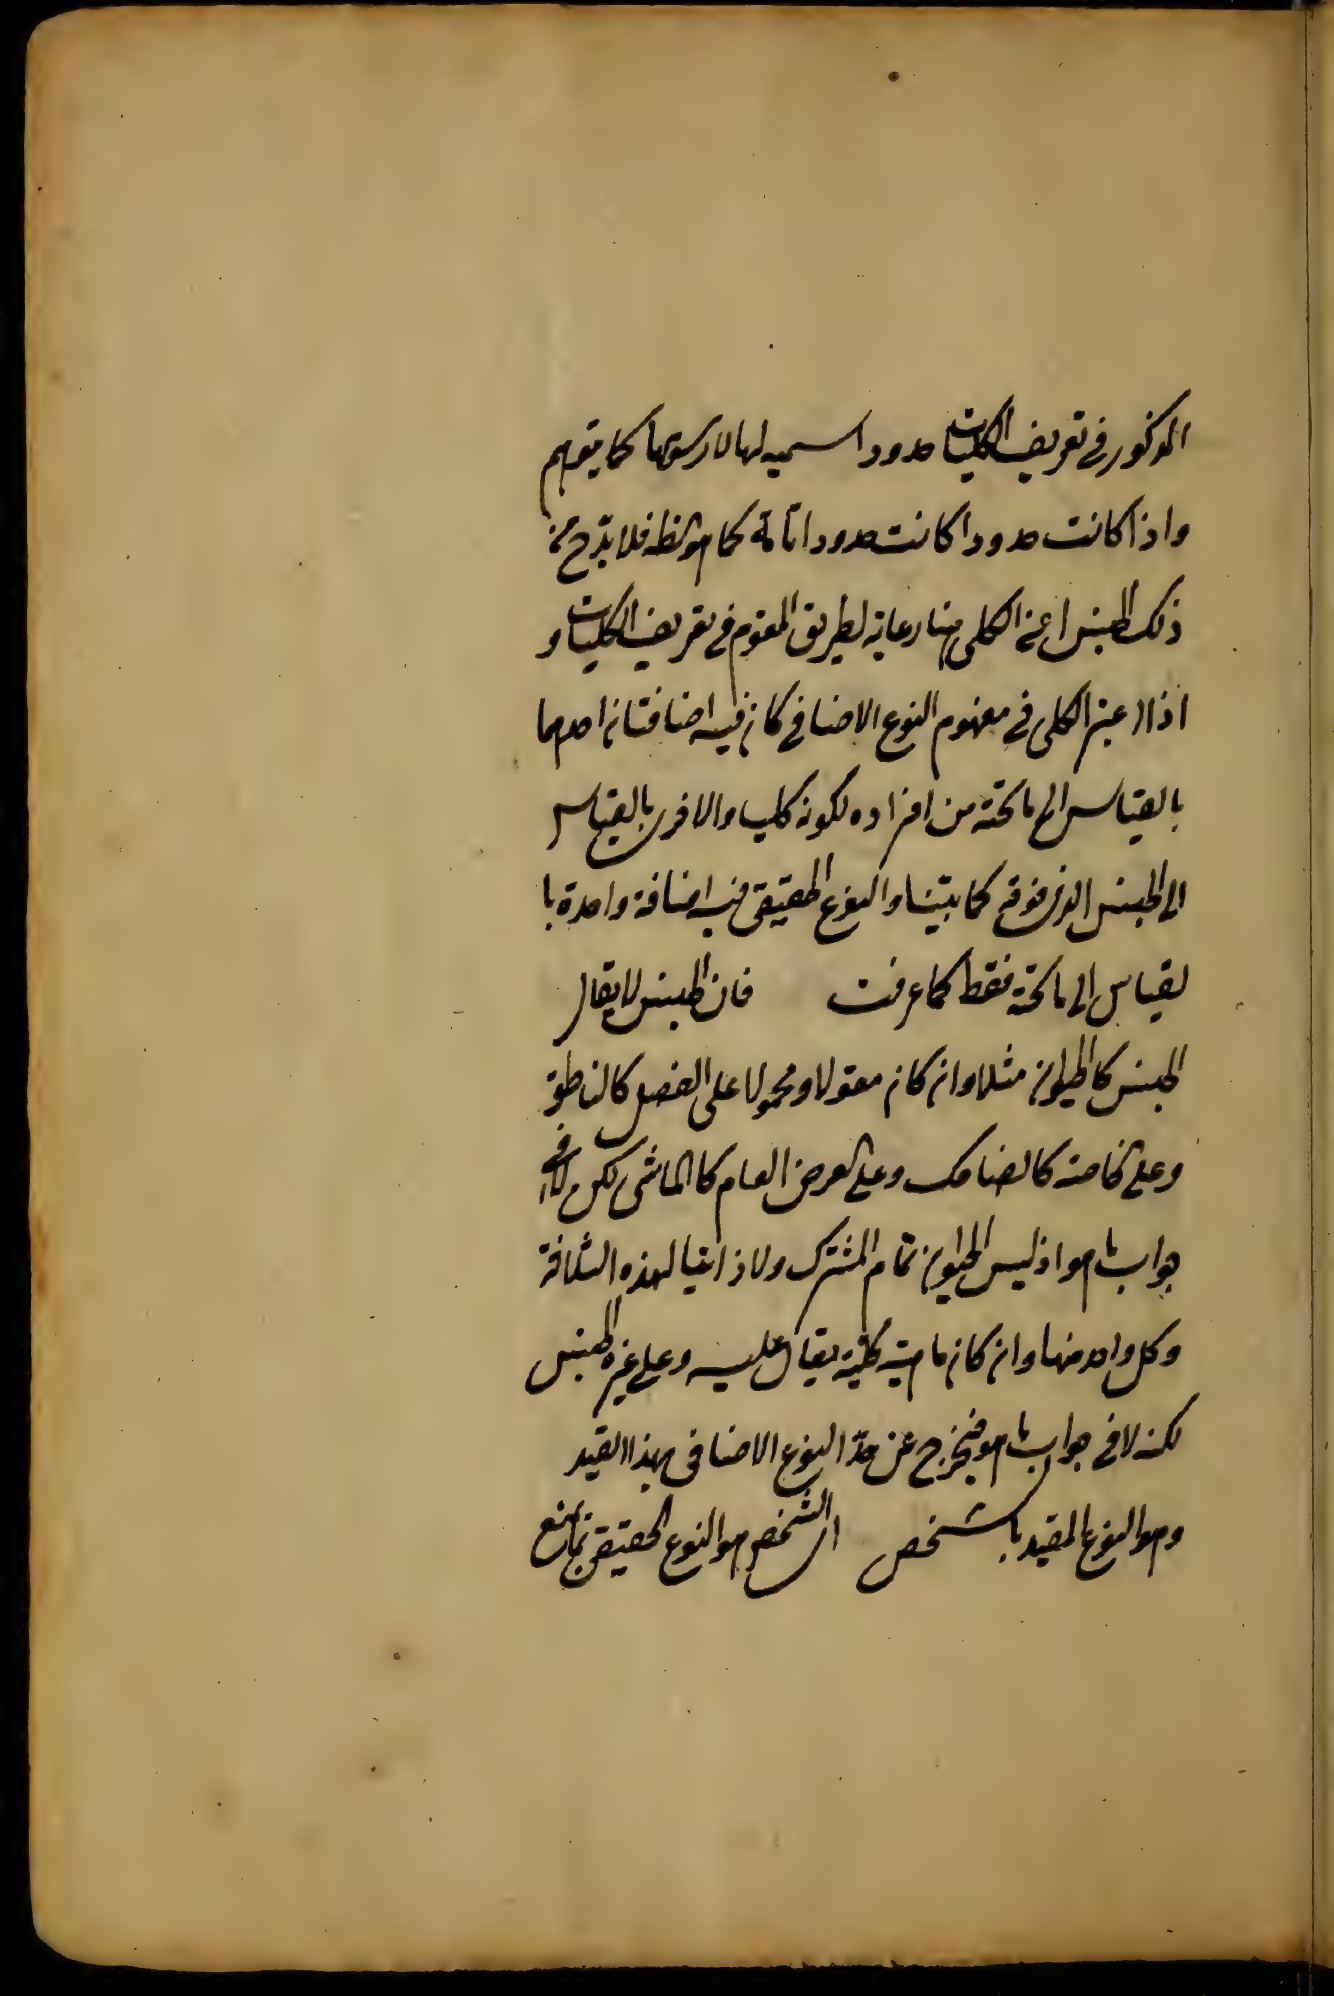 المذكور في تعريف الكليات حدود اسمية لها لا رسوم لها كما يتوهم
واذا كانت حدودا كانت حدودا تامة كما هو ظ فلا بد ح من
ذلك الجنس اعني الكلي ههنا رعاية لطريق القوم في تعريف الكليات و
اذا اعتبر الكلي في مفهوم النوع الاضافي كان فيه اضافتان احدهما
بالقياس الى ما تحته من افراده لكونه كليا والاخرى بالقياس
الى الجنس الذى فوقه كما بينا والنوع الحقيقي فيه اضافة واحدة با
لقياس الى ما تحته فقط كما عرفت فان الجنس لا يقال
الجنس كالحيوان مثلا وان كان مقولا ومحمولا على الفصل كالناطق
وعلى الخاصة كالضاحك وعلى العرض العام كالماشى لكن لا في
جواب ما هو اذ ليس الحيوان تمام المشترك ولا ذاتيا لهذه الثلاثة
وكل واحد منها وان كان ماهية كلية يقال عليه وعلى غيره الجنس
لكنه لا في جواب ما هو فيخرج عن حد النوع الاضافى بهذا القيد
وهو النوع المقيد بالتشخص الشخص هو النوع الحقيقي